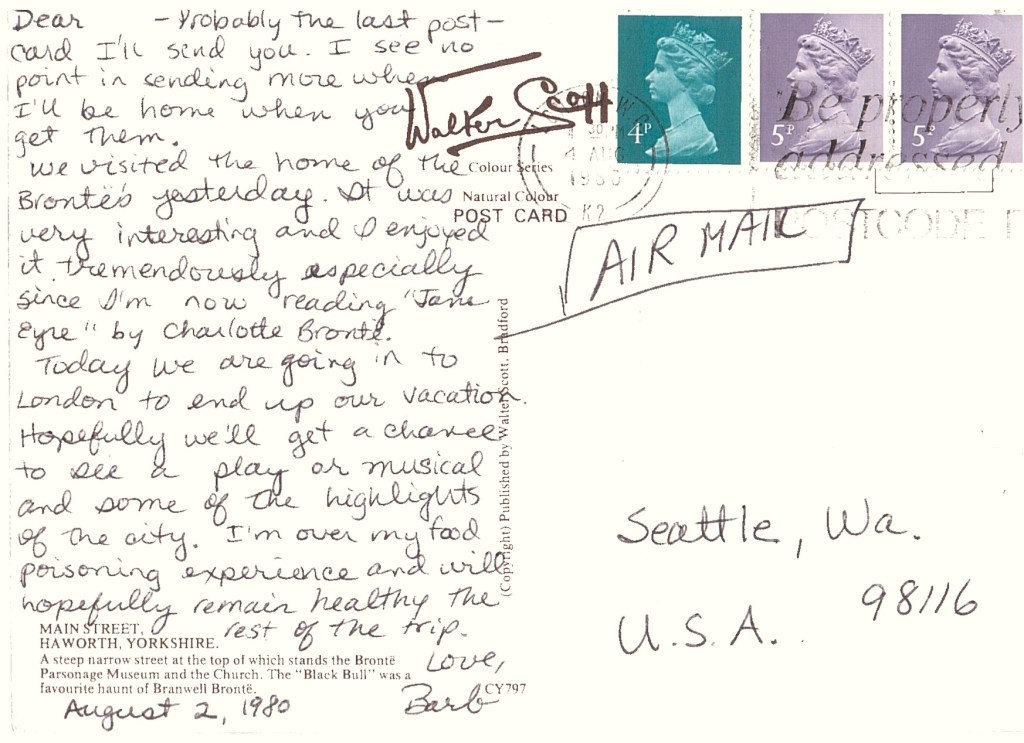 Dear - Probably the last post-
card I'll send you. I see no
point in sending more when
I'll be home when you
get them.
We visited the home of the
Brontë's yesterday. It was
very interesting and I enjoyed
it tremendously especially
since I'm now reading "Jane
Eyre" by Charlotte Brontë.
Today we are going in to
London to end up our vacation.
Hopefully we'll get a chance
to see a play or musical
and some of the highlights
of the city. I'm over my food
poisoning experience and will
hopefully remain healthy the
rest of the trip.
Love,
Barb
August 2, 1980
MAIN STREET,
HAWORTH, YORKSHIRE.
A steep narrow street at the top of which stands the Brontë
Parsonage Museum and the Church. The "Black Bull" was a
favourite haunt of Branwell Brontë.
CY797
Walter Scott
Colour Series
Natural Colour
POST CARD
(Copyright) Published by Walter Scott, Bradford
4P
5P
5P
4 AUG
1980
Be properly
addressed
POSTCODE I
AIR MAIL
Seattle, Wa.
98116
U.S.A.